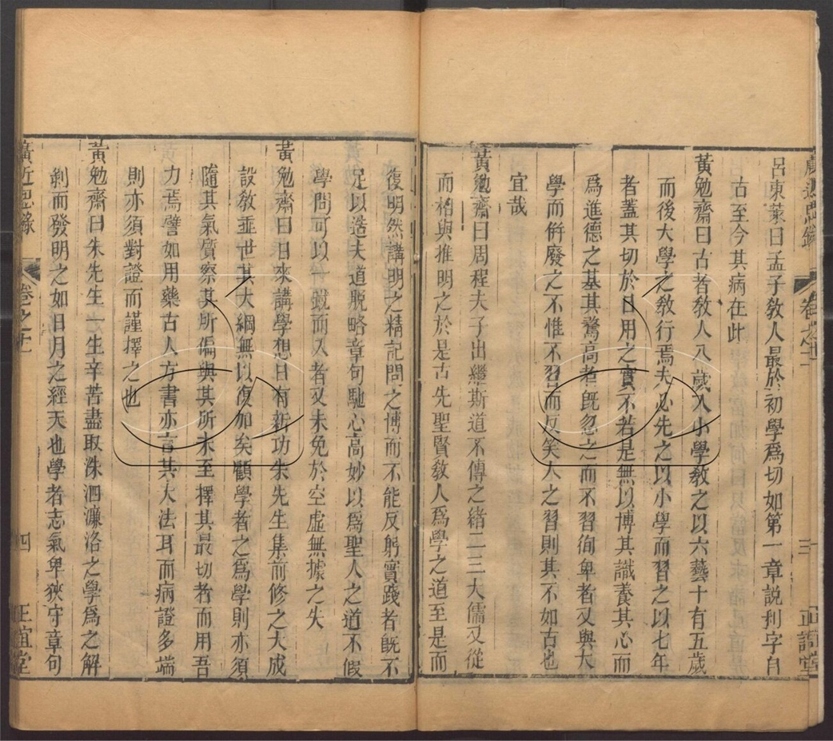 廣近思錄
卷之十一
三
正誼堂
呂東萊曰孟子敎人最於初學爲切如第一章說利字自
古至今其病在此
黃勉齋曰古者敎人八歲入小學敎之以六藝十有五歲
而後大學之敎行焉夫必先之以小學而習之以七年
者蓋其切於日用之實不若是無以博其識養其心而
爲進德之基其騖高者旣忽之而不習徇卑者又與大
學而倂廢之不惟不習而反笑人之習則其不如古也
宜哉
黃勉齋曰周程夫子出繼斯道不傳之緒二三大儒又從
而相與推明之於是古先聖賢敎人爲學之道至是而
復明然講明之精記問之博而不能反躬實踐者旣不
足以造夫道脫略章句馳心高妙以爲聖人之道不假
學問可以一蹴而入者又未免於空虛無據之失
黃勉齋曰日來講學想日有新功朱先生集前修之大成
設敎垂世其大綱無以復加矣顧學者之爲學則亦須
隨其氣質察其所偏與其所未至擇其最切者而用吾
力焉譬如用藥古人方書亦言其大法耳而病證多端
則亦須對證而謹擇之也
黃勉齋曰朱先生一生辛苦盡取洙泗濂洛之學爲之解
剝而發明之如日月之經天也學者志氣卑狹守章句
廣近思錄
卷之十一
四
正誼堂